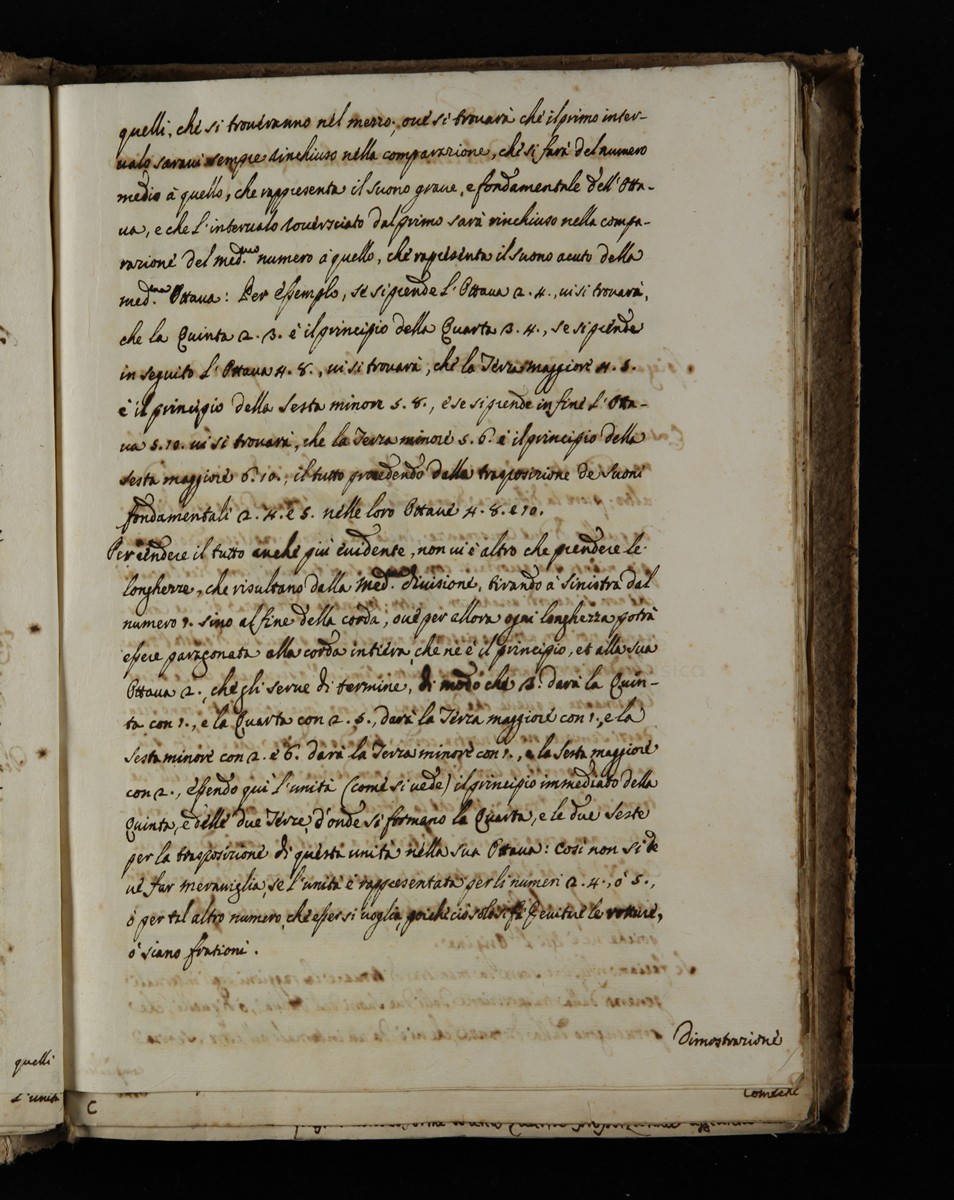 quelli, che si troveranno nel mezzo, ove si trovarà che il primo inter-
valo saravi sempre rinchiuso nella comparazione, che si farà del numero
medio à quello, che rappresenta il suono grave, e fondamentale dell'Otta-
va, e che l'intervalo roversciato dal primo sarà rinchiuso nella compa-
razione del med.mo numero à quello, che rapresenta il suono acuto della
med.ma Ottava: Per essemplo, se si prende l'Ottava 2. 4., vi si trovarà,
che la Quinta 2. 3. è il principio della Quarta 3. 4., se si prende
in seguito l'Ottava 4. 8., vi si trovarà, che la Terza maggiore 4. 5.
è il principio della Sesta minore 5. 8., e se si prende in fine l'Otta-
va 5. 10. vi si trovarà, che la Terza minore 5. 6. è il principio della
Sesta maggiore 6. 10., il tutto procedendo dalla trasposizione de Suoni
fondamentali 2. 4. e 5. nelle loro Ottave 4. 8. e 10.
Per rendere il tutto anche più evidente, non vi è altro che prendere le
longhezze, che risultano dalla med.ma divisione, tirando à sinistra dal
numero 1. sino al fine della corda, ove per allora ogni longhezza potrà
essere paragonata alla corda intiera, che ne è il principio, et alla sua
Ottava 2., che gli serve di termine, di modo che 3. darà la Quin-
ta con 1., e la Quarta con 2. 5., darà la Terza maggiore con 1., e la
Sesta minore con 2. e 6. darà la Terza minore con 1., e la Sesta maggiore
con 2., essendo qui l'unità (come si vede) il principio immediato della
Quinta, e delle due Terze, d'onde si formano la Quarta, e le due Seste
per la trasposizione di questa unità nella sua Ottava: così non si de
ve far meraviglia, se l'unità è rappresentata per li numeri 2. 4., ò 5.,
ò per tal altro numero, che esser si voglia, poiche ciò solo si fà per evitar le rotture,
ò siano frationi.
Dimostrazione
quelli
l'unità
C